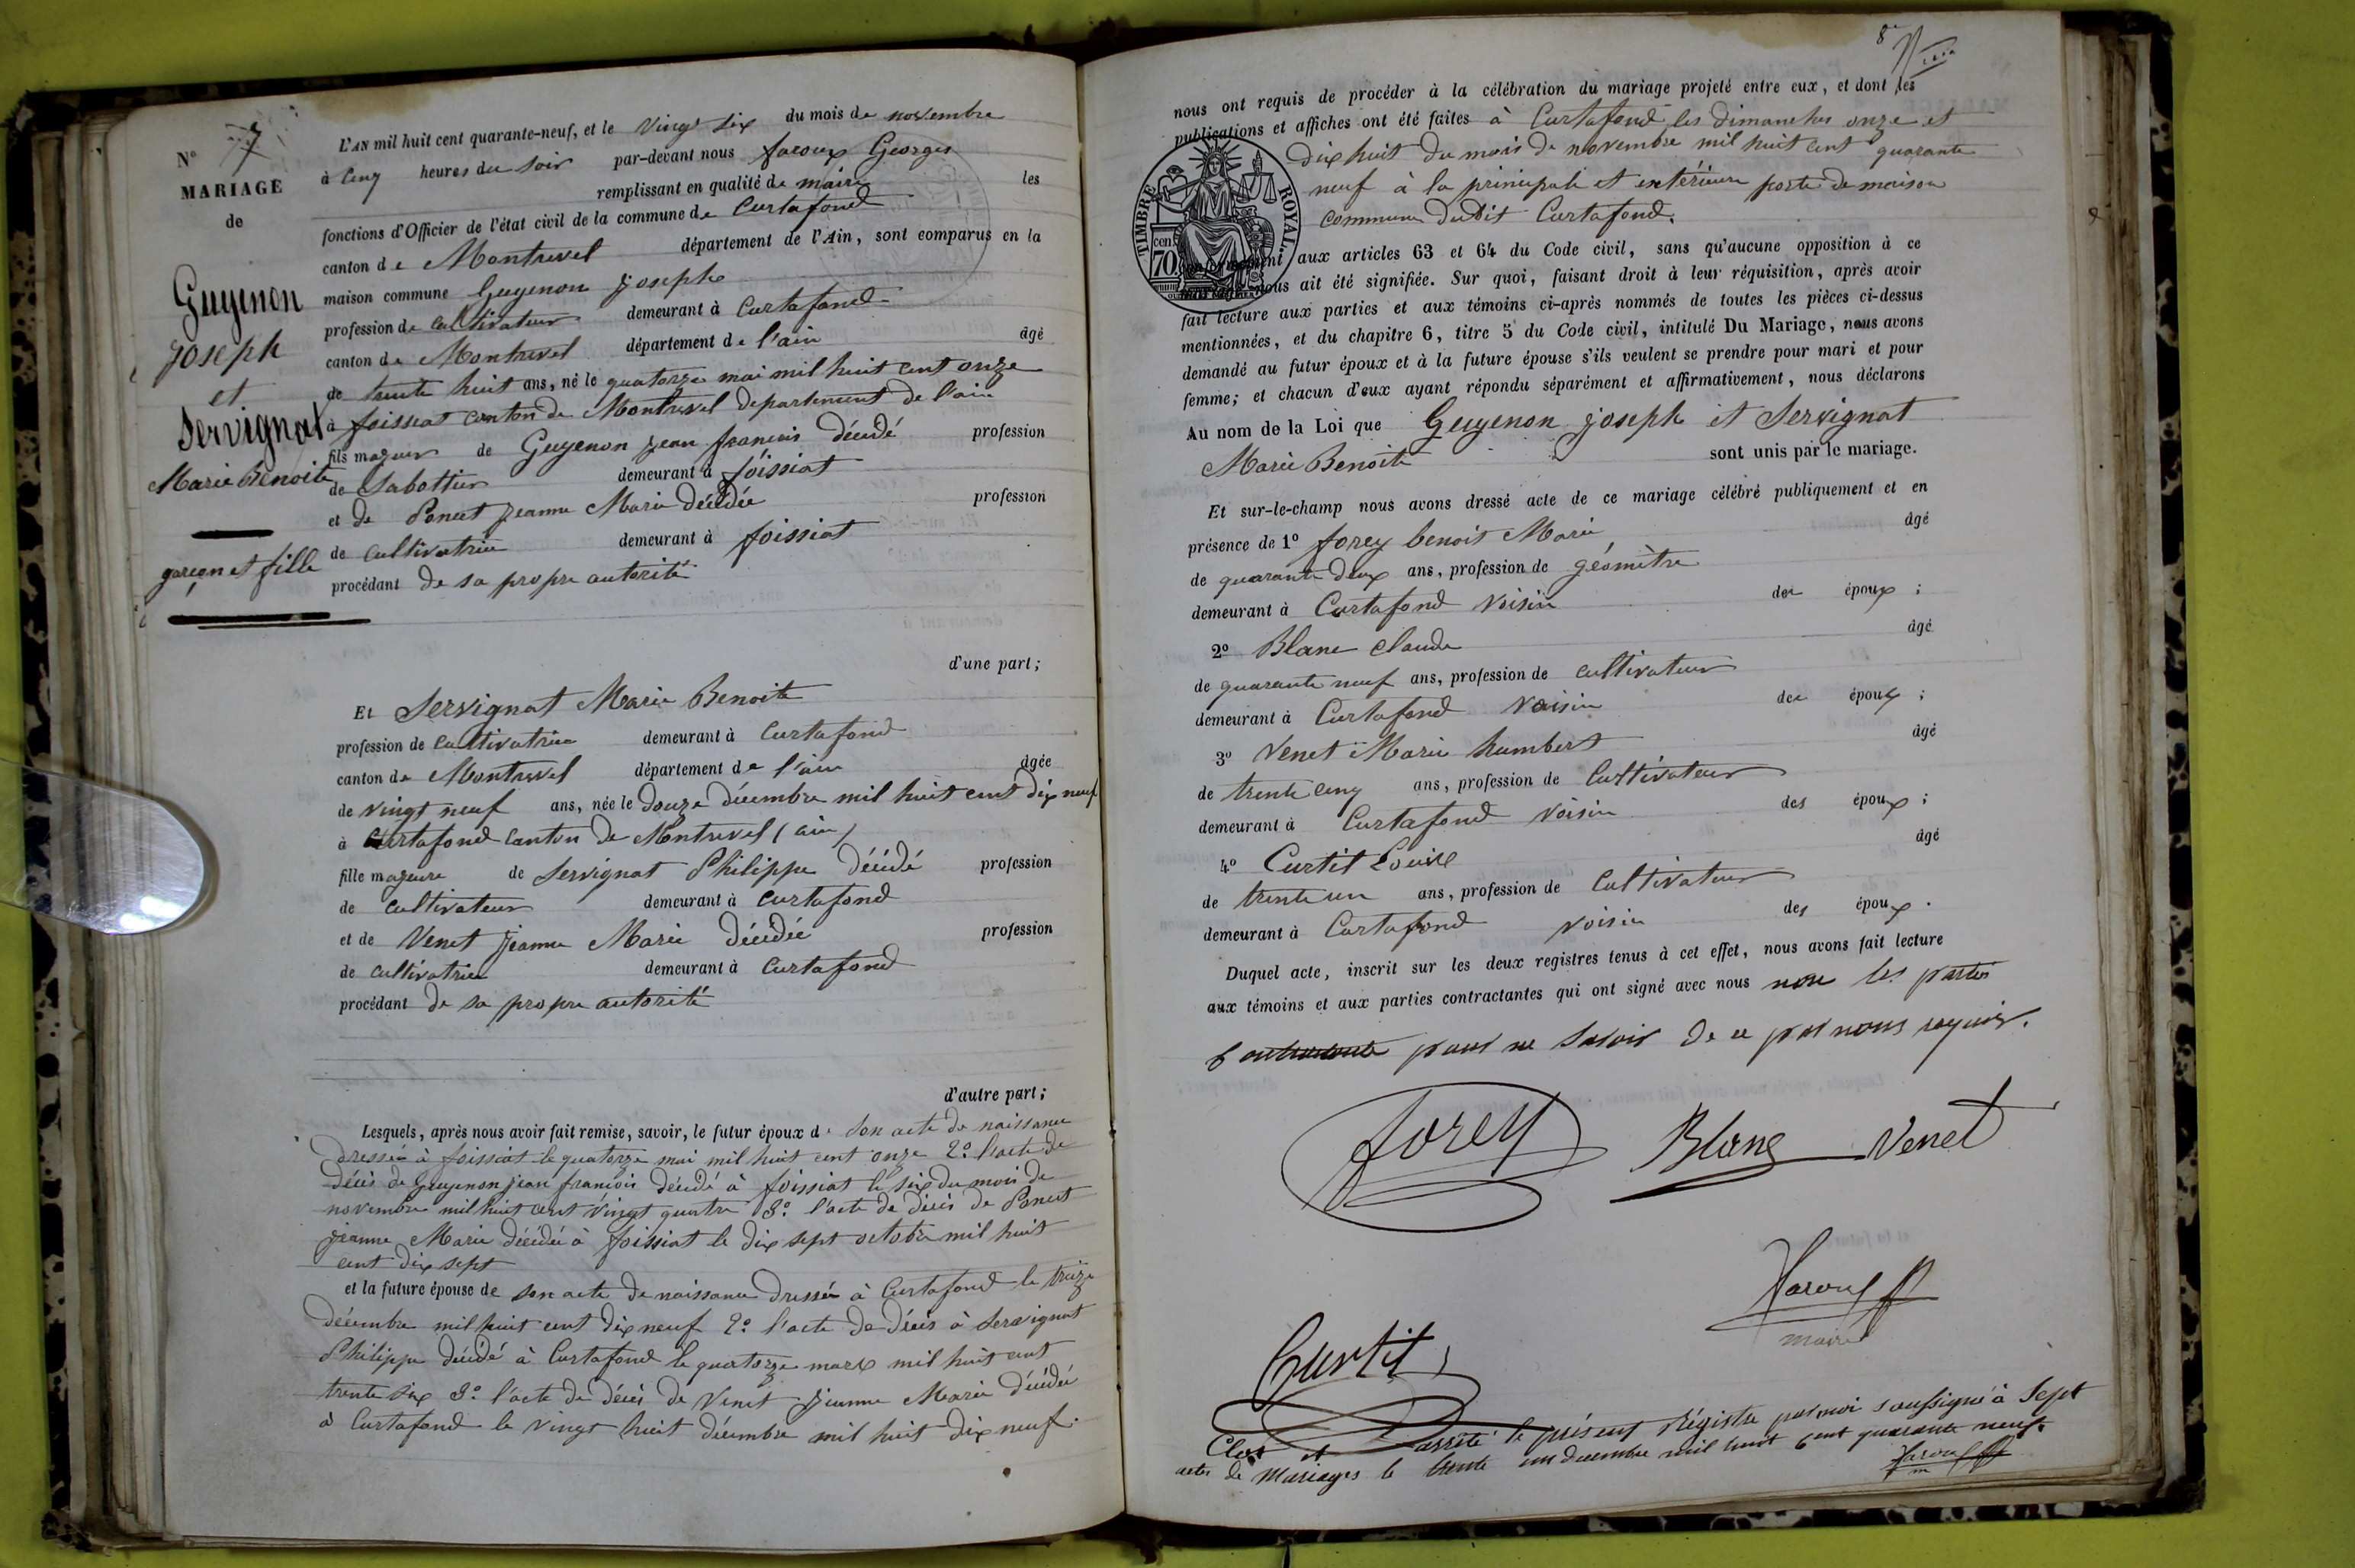 N° 7
MARIAGE
de
Guyenon
joseph
et
Servignat
Marie Benoite
garçon et fille
L'AN mil huit cent quarante-neuf, et le vingt six du mois de novembre
à cinq heures du soir par-devant nous faroux Georges
remplissant en qualité de maire les
fonctions d'Officier de l'état civil de la commune de Curtafond
canton de Montrevel département de l'Ain, sont comparus en la
maison commune Guyenon joseph
profession de cultivateur demeurant à Curtafond
canton de Montrevel département de l'ain âgé
de trente huit ans, né le quatorze mai mil huit cent onze
à foissiat canton de Montrevel departement de l'ain
fils majeur de Guyenon jean francois décédé profession
de Sabottier demeurant à foissiat
et de Poncet jeanne Marie décédée profession
de cultivatrice demeurant à foissiat
procédant de sa propre autorité
d'une part;
Et Servignat Marie Benoite
profession de cultivatrice demeurant à Curtafond
canton de Montrevel département de l'ain âgée
de vingt neuf ans, née le douze décembre mil huit cent dix neuf
à Curtafond canton de Montrevel (ain)
fille majeure de Servignat Philippe décédé profession
de cultivateur demeurant à Curtafond
et de Venet jeanne Marie décédée profession
de cultivatrice demeurant à Curtafond
procédant de sa propre autorité
d'autre part;
Lesquels, après nous avoir fait remise, savoir, le futur époux de son acte de naissance
dressée à foissiat le quatorze mai mil huit cent onze 2° l'acte de
décès de Guyenon jean francois décédé à foissiat le six du mois de
novembre mil huit cent vingt quatre 3° l'acte de décès de Poncet
jeanne Marie décédée à foissiat le dix sept octobre mil huit
cent dix sept
et la future épouse de son acte de naissance dressée à Curtafond le treize
décembre mil huit cent dix neuf 2° l'acte de décès à Servignat
Philippe décédé à Curtafond le quatorze mars mil huit cent
trente six 3° l'acte de décès de Venet jeanne Marie décédée
à Curtafond le vingt huit décembre mil huit dix neuf.
8
nous ont requis de procéder à la célébration du mariage projeté entre eux, et dont les
publications et affiches ont été faites à Curtafond les dimanches onze et
dix huit du mois de novembre mil huit cent quarante
neuf à la principale et extérieure porte de maison
commune dudit Curtafond.
TIMBRE ROYAL.
cen. 70
conformément aux articles 63 et 64 du Code civil, sans qu'aucune opposition à ce
mariage nous ait été signifiée. Sur quoi, faisant droit à leur réquisition, après avoir
fait lecture aux parties et aux témoins ci-après nommés de toutes les pièces ci-dessus
mentionnées, et du chapitre 6, titre 5 du Code civil, intitulé Du Mariage, nous avons
demandé au futur époux et à la future épouse s'ils veulent se prendre pour mari et pour
femme; et chacun d'eux ayant répondu séparément et affirmativement, nous déclarons
Au nom de la Loi que Guyenon joseph et Servignat
Marie Benoite sont unis par le mariage.
Et sur-le-champ nous avons dressé acte de ce mariage célébré publiquement et en
présence de 1° forey benoit Marie âgé
de quarante deux ans, profession de géomètre
demeurant à Curtafond voisin des époux;
2° Blanc Claude âgé
de quarante neuf ans, profession de cultivateur
demeurant à Curtafond voisin des époux;
3° Venet Marie humbert âgé
de trente cinq ans, profession de Cultivateur
demeurant à Curtafond voisin des époux;
4° Curtit Louis âgé
de trente un ans, profession de Cultivateur
demeurant à Curtafond voisin des époux.
Duquel acte, inscrit sur les deux registres tenus à cet effet, nous avons fait lecture
aux témoins et aux parties contractantes qui ont signé avec nous non les parties
contractante pour ne savoir de ce par nous requis.
forey Blanc Venet
faroux
maire
Curtit
Clos et arrêté le présent Régistre par moi soussigné à sept
actes de Mariages le trente un decembre mil huit cent quarante neuf.
faroux
m